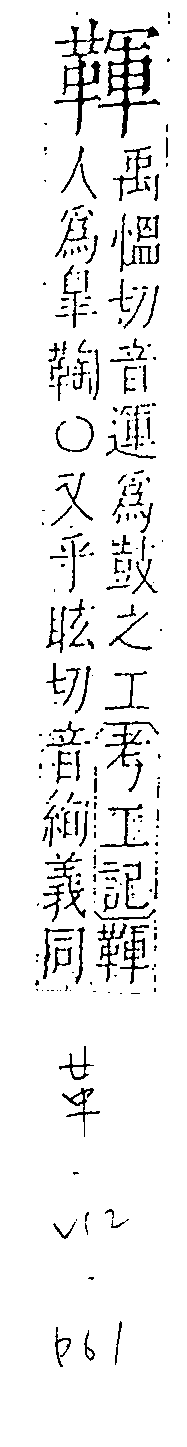 韗
禹慍切音運為鼓之工考工記韗
人為皐鞠〇又乎眩切音絢義同
革
·
V12
·
p61